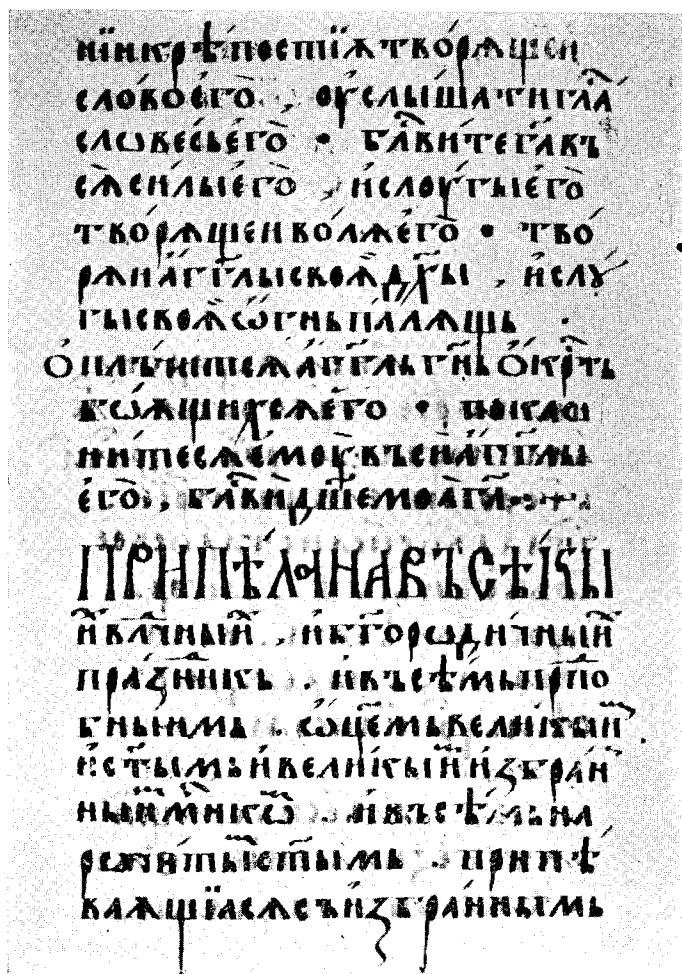 нїи крѣпостїѫ творѧщеи
слово е҆го̀ , оу҆слы́шати гл҃а
слѡвесь е҆го̀ • бл҃вите г҃а въ
сѧ̀ си́лы е҆го̀ , и҆ слоугы е҆го̀
творѧщеи во́лѧ е҆го̀ • тво́
рѧи а҆́гг҃лы своѧ̀ дх҃ы , и҆ слꙋ́
гы своѧ̀ ѡ҆́гнь палѧщь .
О҆плъчитсѧ а҆́гг҃ль гн҃ь о҆́крⷭ҇ть
боѧ́щихсѧ е҆го̀ • поклѡ
нитесѧ е҆моу̀ въси а҆́гг҃лы
е҆го̀ , бл҃ви дш҃е моа̀ г҃а
ПРИПѢЛА НА ВЪСѢКЫ
и҆ влⷣчный , и҆ бг҃оро́дичный
пра́здникь . и҆ въсѣ́мь прпⷣо
бныимь . ѡ҆ц҃емь великыи҆
и҆ ст҃ымь и҆ великыи҆ и҆збра́н
ныи҆ мч҃никѡ . и҆ въсѣ́мь на
рочитыи҆ ст҃ымь . припѣ́
ваѧщїасѧ съ и҆збра́ннымь